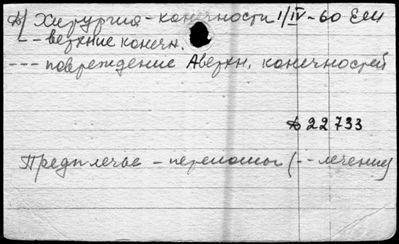 А) Хирургия - конечности 1/IV-60 Ееи
-- верхние конечн.
--- повреждение Аверхн. конечностей
А 22733
Предплечье - переломы (-- лечение)